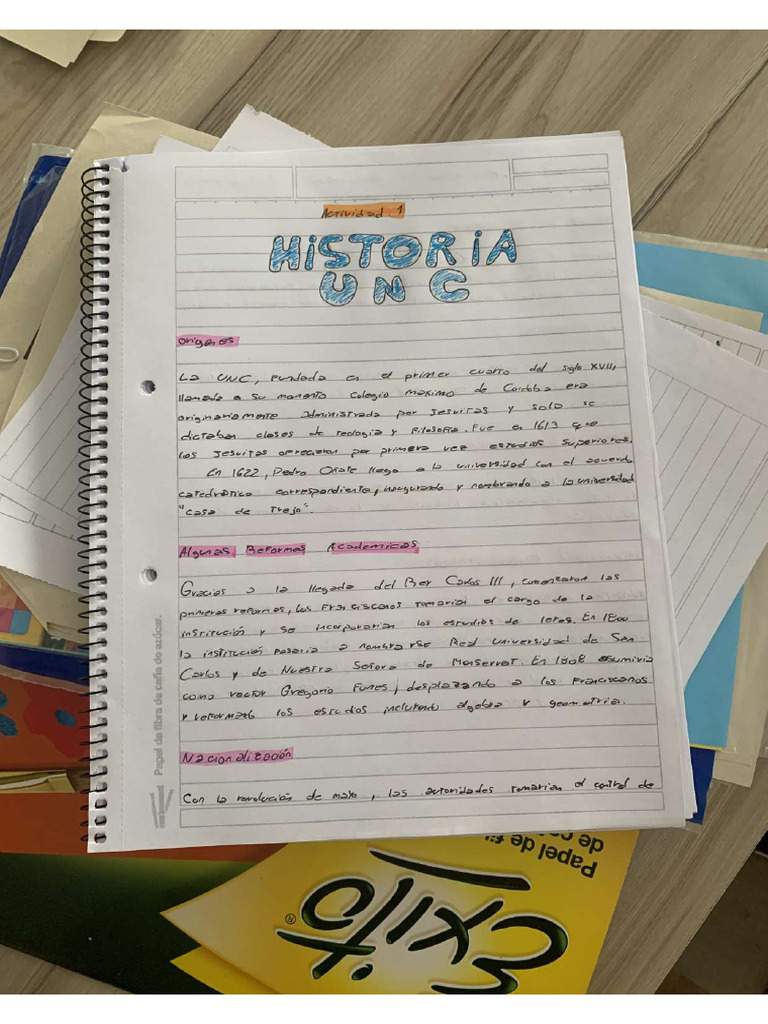 Actividad 1
HiSTORiA
UNC
Origenes
La UNC, fundada en el primer cuarto del siglo XVII,
llamada a su momento Colegio maximo de Cordoba era
originariamente administrada por Jesuitas y solo se
dictaban clases de teologia y filosofia. Fue en 1613 que
los Jesuitas ofrecieron por primera vez estudios superiores.
En 1622, Pedro Oñate llego a la universidad con el acuerdo
catedratico correspondiente, inaugurando y nombrando a la universidad
"casa de Trejo".
Algunas Reformas Academicas
Gracias a la llegada del Rey Carlos III, comenzaron las
primeras reformas, los Franciscanos tomarian el cargo de la
institución y se incorporarian los estudios de letes. En 1800
la institución pasaria a nombrarse Real Universidad de San
Carlos y de Nuestra Señora de Monserrat. En 1808 asumiria
como rector Gregorio Funes, desplazando a los Franciscanos
y reformando los estudios incluyendo algebra y geometria.
Nacionalización
Con la revolución de mayo, las autoridades tomarian el control de
Papel de fibra de caña de azúcar.
Papel de fi
de ca
éxito
®